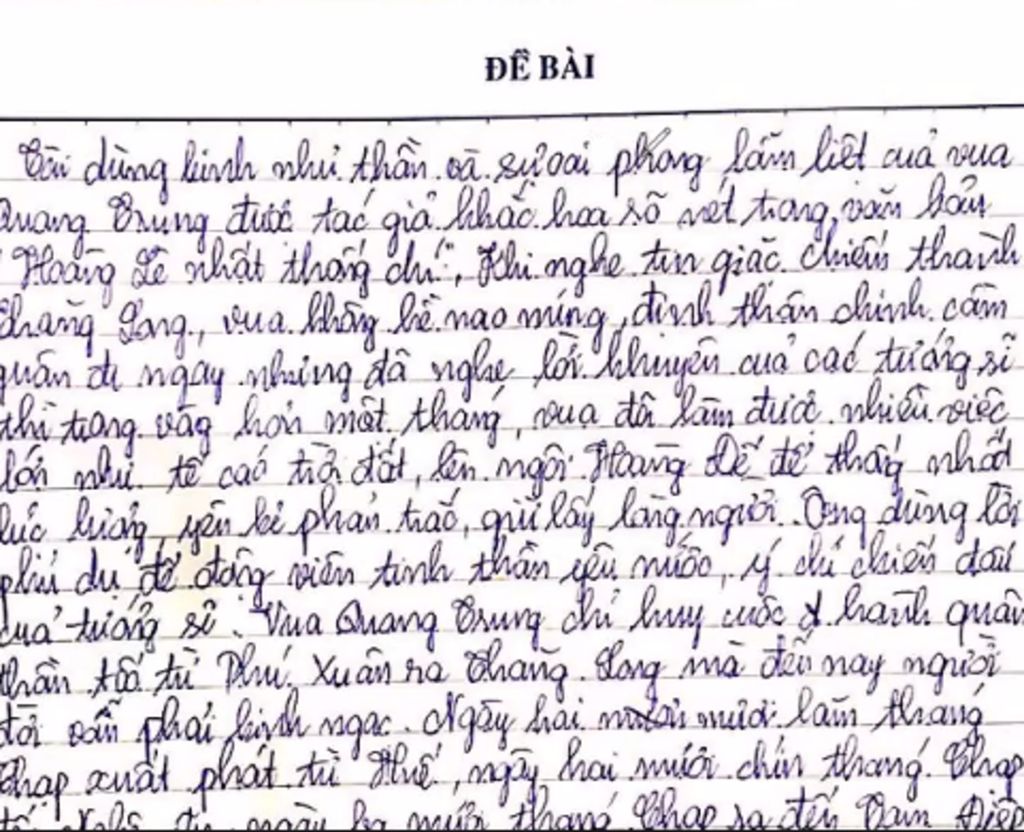 ĐỀ BÀI
Tài dùng binh như thần và sự oai phong lẫm liệt của vua
Quang Trung được tác giả khắc họa rõ nét trong văn bản
"Hoàng Lê nhất thống chí". Khi nghe tin giặc chiếm thành
Thăng Long, vua không hề nao núng, định thân chinh cầm
quân đi ngay nhưng đã nghe lời khuyên của các tướng sĩ
thì trong vòng hơn một tháng, vua đã làm được nhiều việc
lớn như tế cáo trời đất, lên ngôi Hoàng Đế để thống nhất
lực lượng, yên kẻ phản trắc, giữ lấy lòng người. Ông dùng lời
phủ dụ để động viên tinh thần yêu nước, ý chí chiến đấu
của tướng sĩ. Vua Quang Trung chỉ huy cuộc hành quân
thần tốc từ Phú Xuân ra Thăng Long mà đến nay người
đời vẫn phải kinh ngạc. Ngày hai mươi lăm tháng
Chạp xuất phát từ Huế, ngày hai mươi chín tháng Chạp
tới Nghệ An, ngày ba mươi tháng Chạp ra đến Tam Điệp